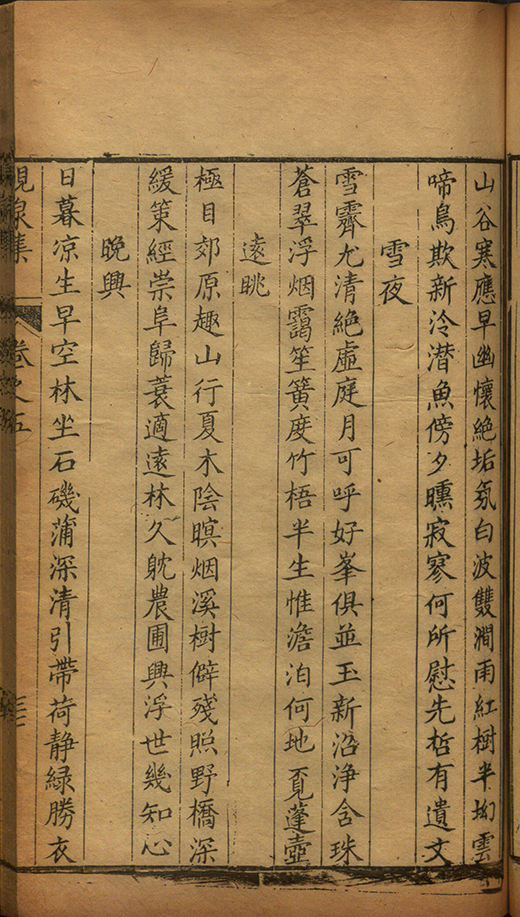 山谷寒應早幽懷絶垢氛白波雙澗雨紅樹半坳雲
啼鳥欺新泠潜魚傍夕曛寂寥何所慰先哲有遺文
雪夜
雪霽尤清絶虛庭月可呼好峯俱並玉新沼浄含珠
蒼翠浮烟靄笙簧度竹梧半生惟澹泊何地覔蓬壺
遠眺
極目郊原趣山行夏木陰暝烟溪樹僻殘照野橋深
緩策經崇阜歸蓑適遠林久躭農圃興浮世幾知心
晚興
日暮凉生早空林坐石磯蒲深清引帶荷静緑勝衣
卷之五